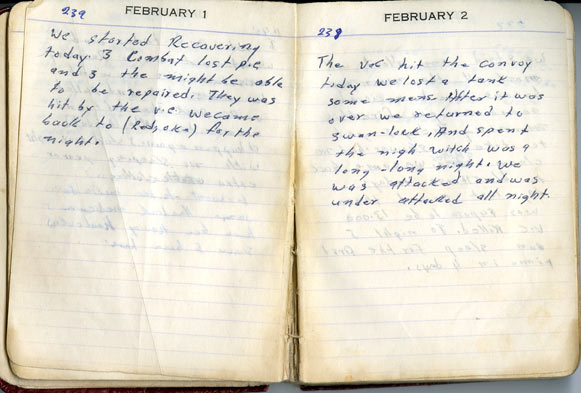 239
FEBRUARY 1
We started Recovering
today. 3 Combat lost p.c
and 3 the might be able
to be repaired. They was
hit by the v.c we came
back to (Red oaks) for the
night.
238
FEBRUARY 2
The V.C hit the convoy
today we lost a tank
some mens After it was
over we returned to
swan-lock, And spent
the nigh witch was a
long-long night. We
was attacked and was
under attacked all night.